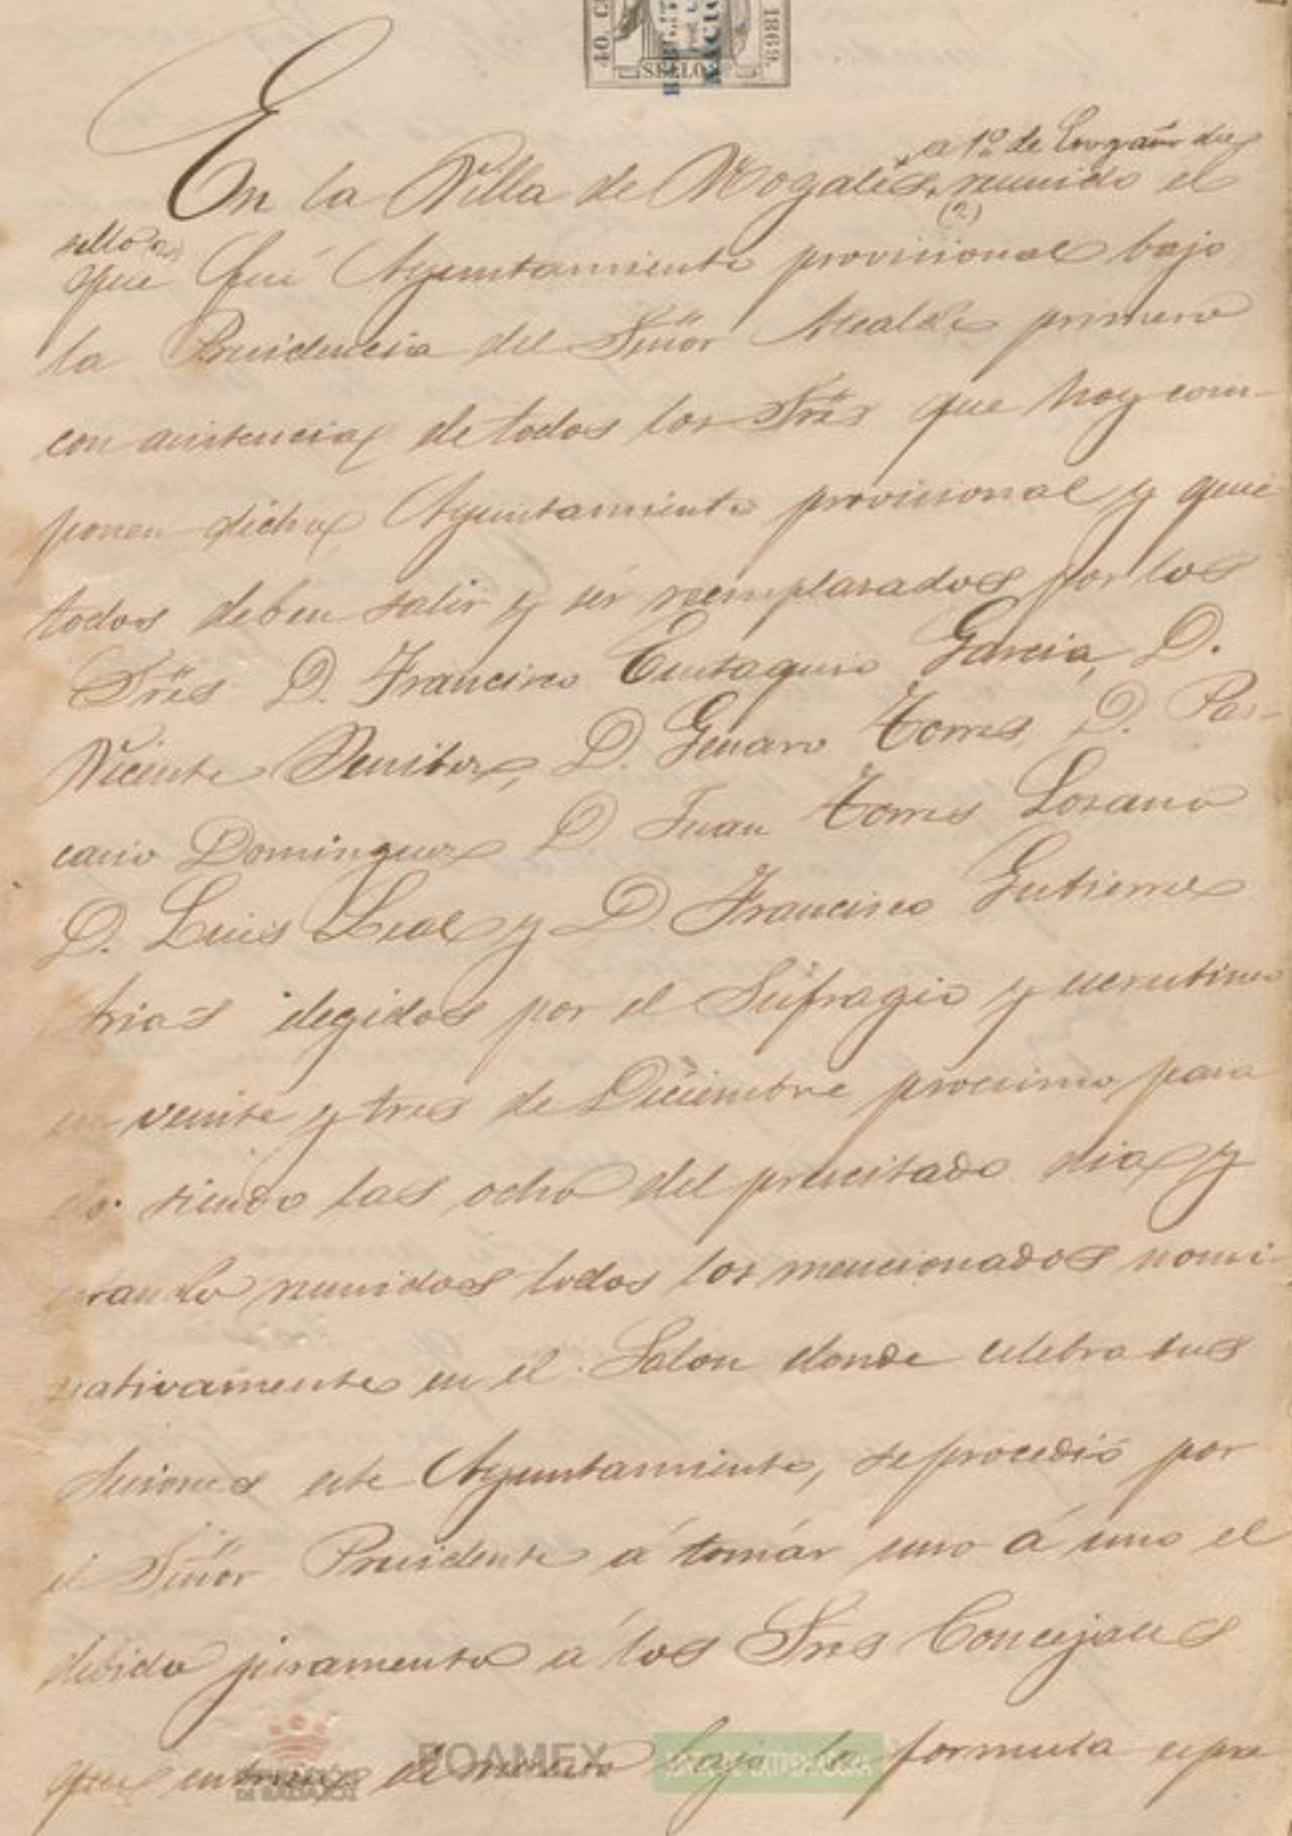 40 C
SELLO
1869.
a 1º de Enº
En la Villa de Nogales, reunido el
(2)
que fué Ayuntamiento provisional bajo
la Presidencia del Señor Alcalde primero
con asistencia de todos los Srēs que hoy com-
ponen dicho Ayuntamiento provisional y que
todos deben salir y sér reemplasados por los
Srēs D. Francisco Eustaquio Garcia, D.
Vicente Benites, D. Genaro Torres, D. Pas-
casio Dominguez D Juan Torres Losano
D. Luis Leal y D. Francisco Gutierres
elegidos por el Sufragio y escrutinio
veinte y tres de Diciembre procsimo pasa
do. siendo las ocho del precitado dia y
estando reunidos todos los mencionados nomi-
nativamente en el Salon donde celebra sus
sesiones este Ayuntamiento, se procedió por
el Señor Presidente á tomár uno á uno el
debido juramento a los Srēs Concejales
que entran de nuevo bajo la formula espre
BOAMEX